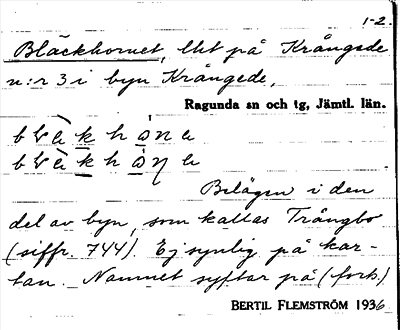 1-2.
Bläckhornet, litet på Krångede
n:r 3 i byn Krångede,
Ragunda sn och tg, Jämtl. län.
Belägen i den
del av byn, som kallas Trångbo
(siffr. 744). Ej synlig på kar-
tan. Namnet syftar på (forts)
BERTIL FLEMSTRÖM 1936